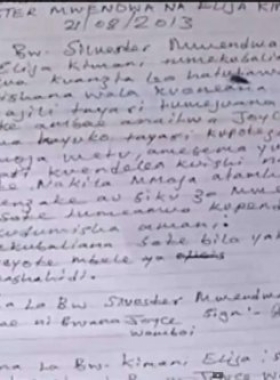 STER MWENDWA NA ELIJA KIM
21/08/2013
Bw. Silvester Mwendwa
Elija Kimani tumekubali
kuanzia leo hatuta
ishana wala kuoneana
ajili tayari tumejuana
ke ambae anaitwa Joyce
wa hayuko tayari kupote
moja wetu, amesema yu
ari kuendelea kuishi n
le. Nakila mmoja atamhu
enzake au siku 3
Sote tumeamua kupend
kudumisha amani.
ekubaliana sote bila ya
yeyote mbele ya
ashahidi.
na La Bw Silvester Mwendw
ae ni Bwana Joyce Sign:-
Wamboi
na La Bw. Kimani Elija :